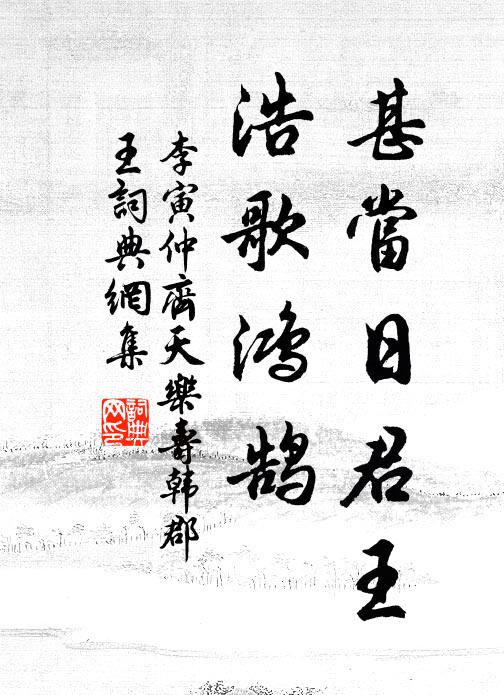 甚當日君王
浩歌鴻鹄
李寅仲齊天樂壽韩郡
王詞典網集
詞典
网印